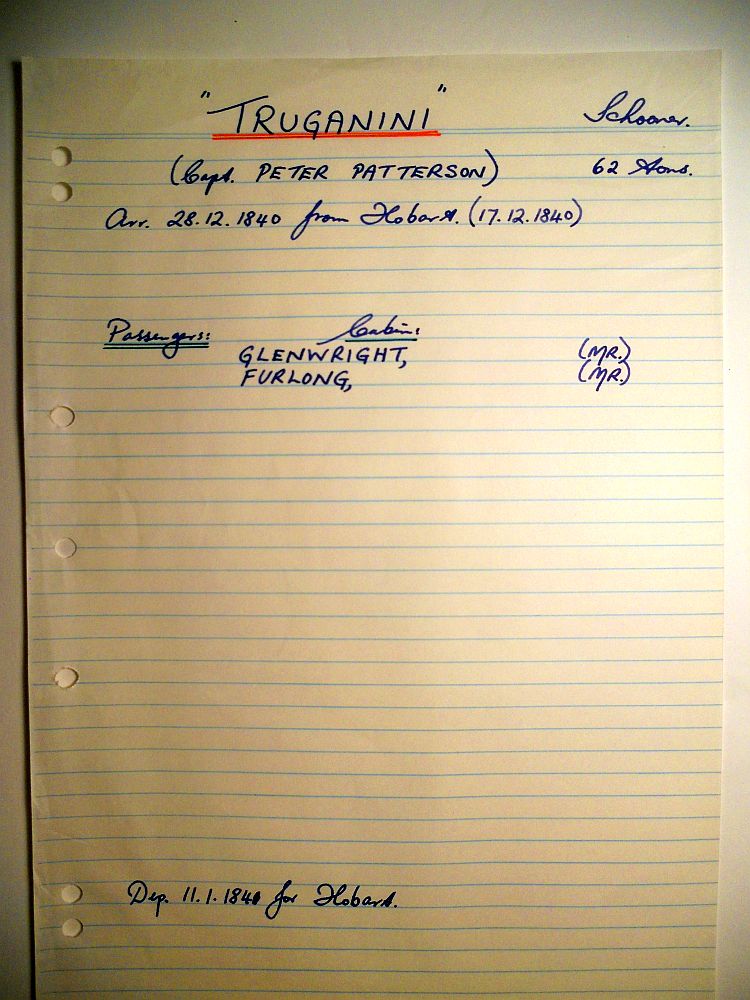 "TRUGANINI" Schooner.
(Capt. PETER PATTERSON) 62 tons.
Arr. 28.12.1840 from Hobart. (17.12.1840)
Passengers: Cabin:
GLENWRIGHT, (MR.)
FURLONG, (MR.)
Dep. 11.1.1841 for Hobart.